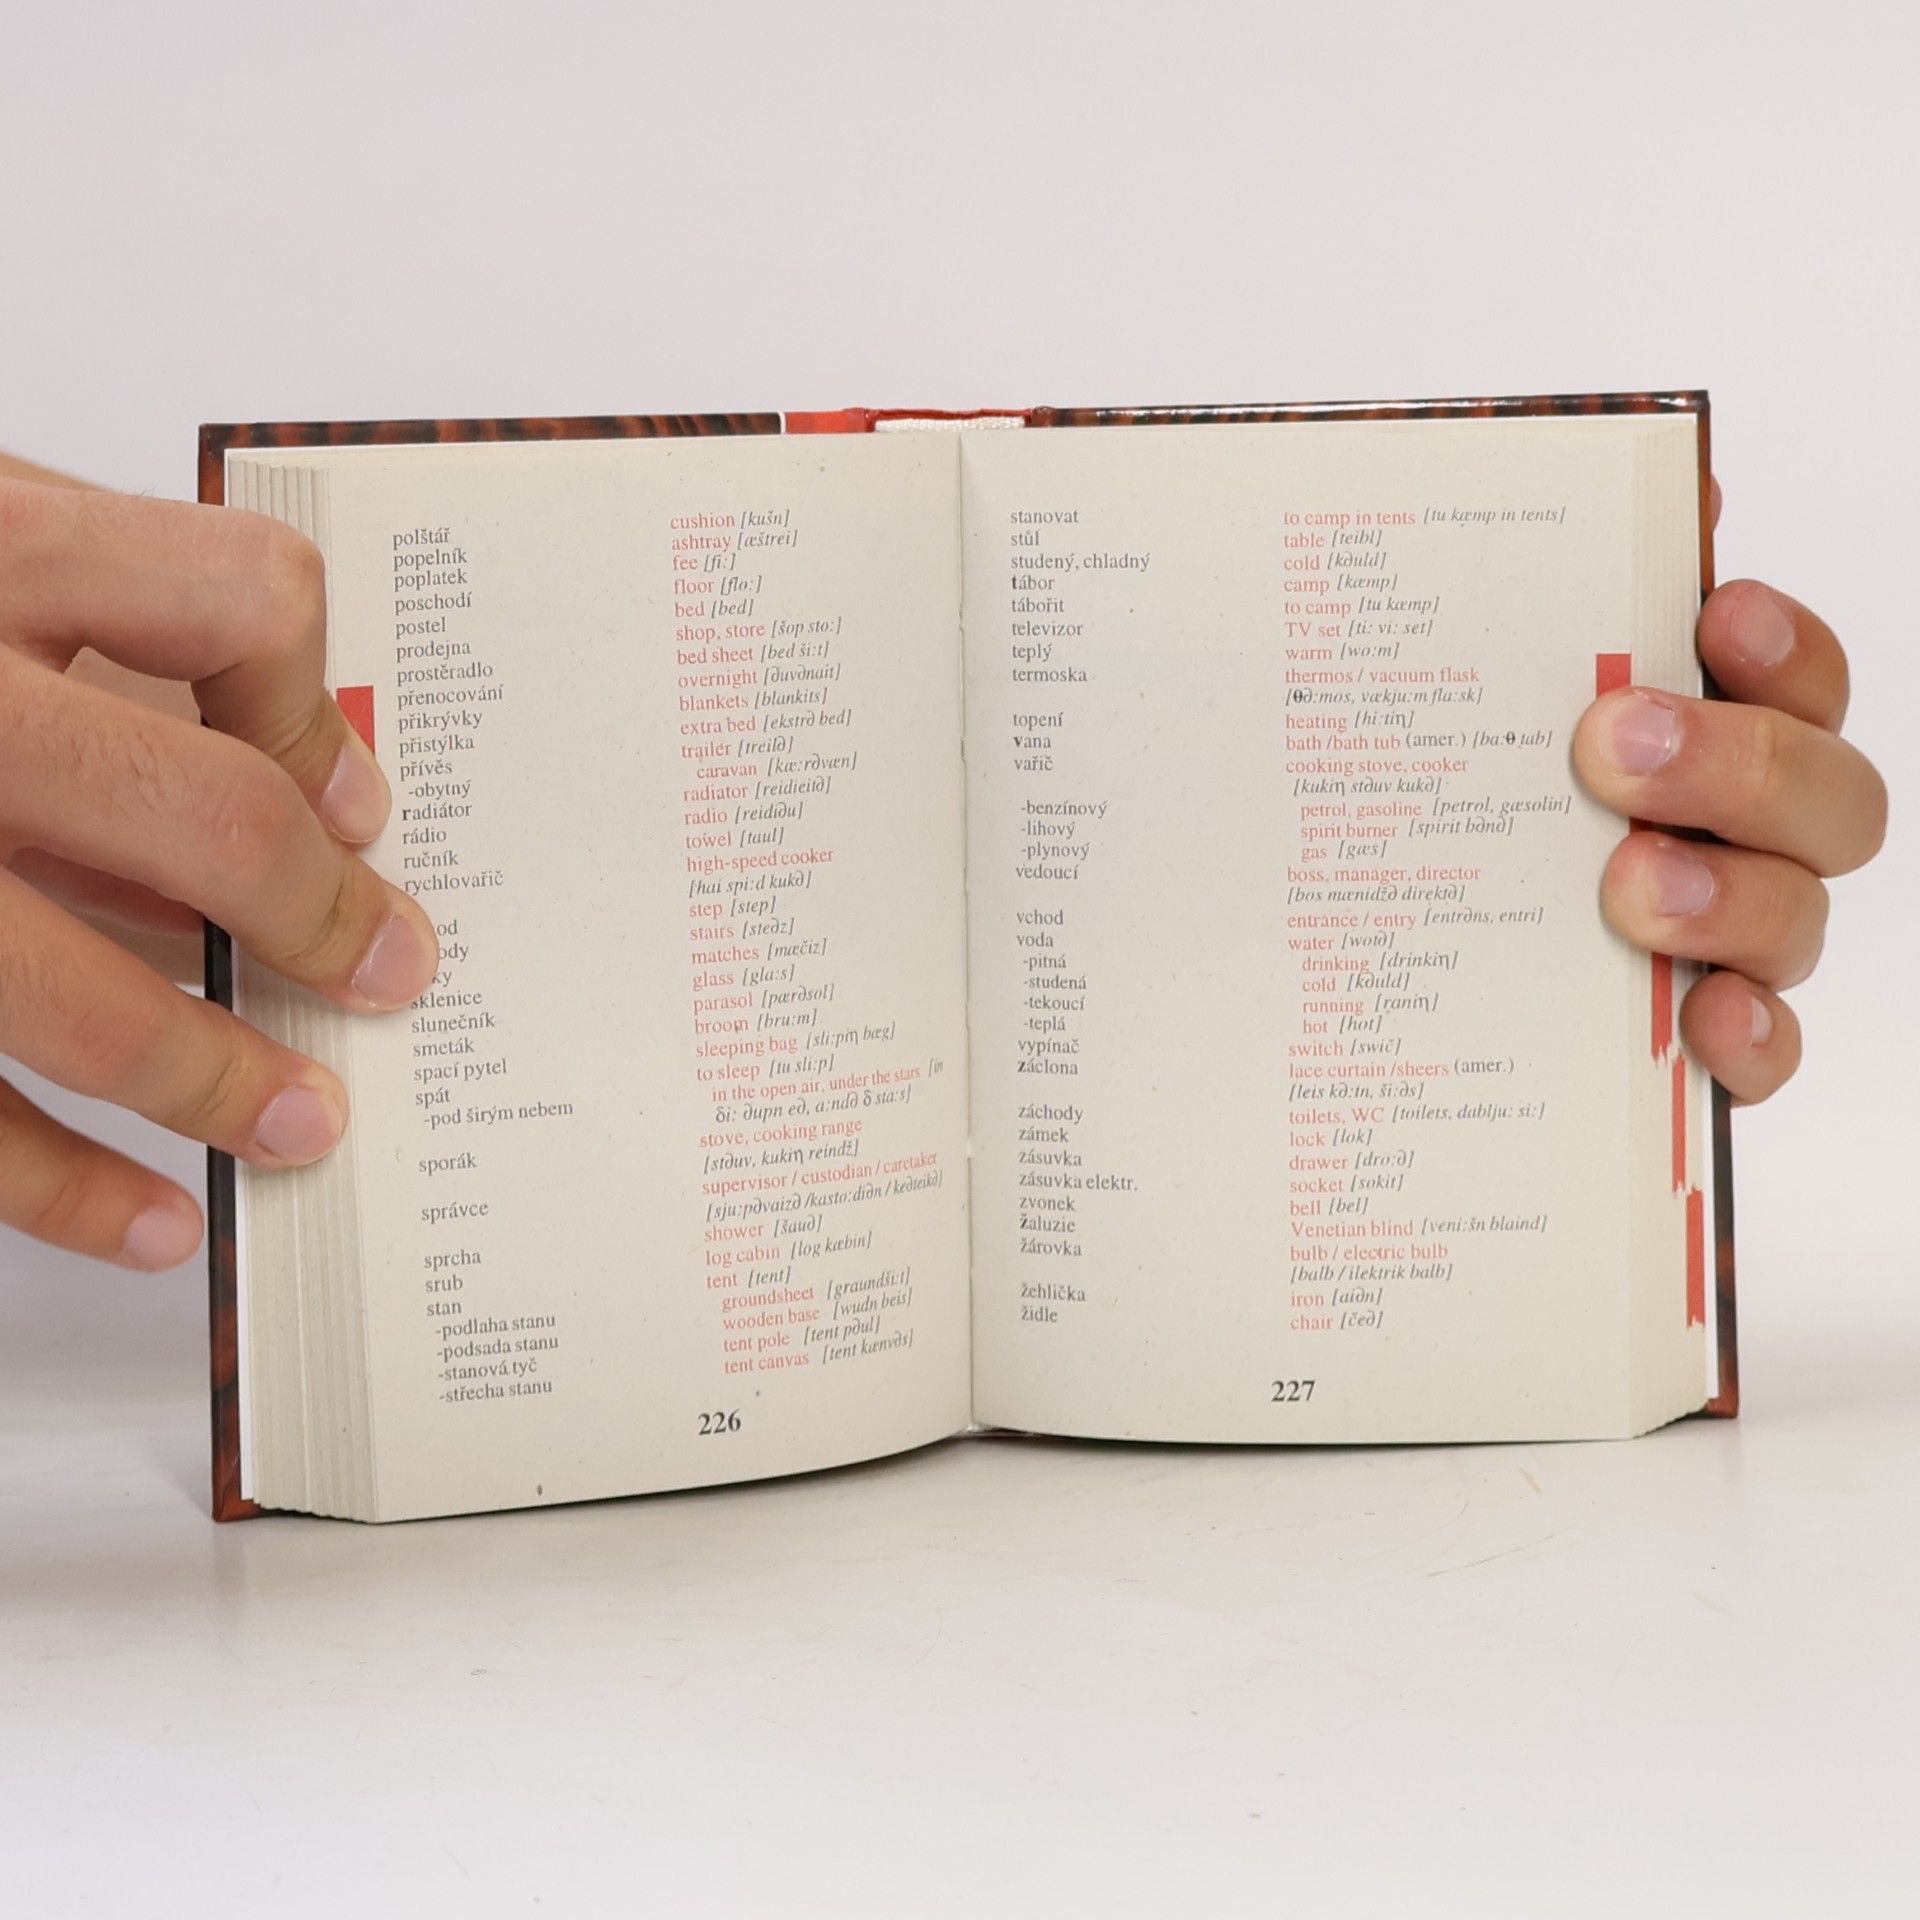 polštář cushion [kušn]
popelník ashtray [æštrei]
poplatek fee [fi:]
poschodí floor [flo:]
postel bed [bed]
prodejna shop, store [šop sto:]
prostěradlo bed sheet [bed ši:t]
přenocování overnight [∂uv∂nait]
přikrývky blankets [blankits]
přistýlka extra bed [ekstr∂ bed]
přívěs trailer [treil∂]
-obytný caravan [kæ:r∂væn]
radiátor radiator [reidieit∂]
rádio radio [reidi∂u]
ručník towel [taul]
rychlovařič high-speed cooker
[hai spi:d kuk∂]
step [step]
stairs [ste∂z]
matches [mæčiz]
sklenice glass [gla:s]
slunečník parasol [pær∂sol]
smeták broom [bru:m]
spací pytel sleeping bag [sli:piη bæg]
spát to sleep [tu sli:p]
-pod širým nebem in the open air, under the stars [in
δi: ∂upn e∂, a:nd∂ δ sta:s]
sporák stove, cooking range
[st∂uv, kukiη reindž]
správce supervisor / custodian / caretaker
[sju:p∂vaiz∂ /kasto:di∂n / ke∂teik∂]
sprcha shower [šau∂]
srub log cabin [log kæbin]
stan tent [tent]
-podlaha stanu groundsheet [graundši:t]
-podsada stanu wooden base [wudn beis]
-stanová tyč tent pole [tent p∂ul]
-střecha stanu tent canvas [tent kænv∂s]
226
stanovat to camp in tents [tu kæmp in tents]
stůl table [teibl]
studený, chladný cold [k∂uld]
tábor camp [kæmp]
tábořit to camp [tu kæmp]
televizor TV set [ti: vi: set]
teplý warm [wo:m]
termoska thermos / vacuum flask
[θ∂:mos, vækju:m fla:sk]
topení heating [hi:tiη]
vana bath /bath tub (amer.) [ba:θ tab]
vařič cooking stove, cooker
[kukiη st∂uv kuk∂]
-benzínový petrol, gasoline [petrol, gæsolin]
-lihový spirit burner [spirit b∂n∂]
-plynový gas [gæs]
vedoucí boss, manager, director
[bos mænidž∂ direkt∂]
vchod entrance / entry [entr∂ns, entri]
voda water [wot∂]
-pitná drinking [drinkiη]
-studená cold [k∂uld]
-tekoucí running [raniη]
-teplá hot [hot]
vypínač switch [swič]
záclona lace curtain /sheers (amer.)
[leis k∂:tn, ši:∂s]
záchody toilets, WC [toilets, dablju: si:]
zámek lock [lok]
zásuvka drawer [dro:∂]
zásuvka elektr. socket [sokit]
zvonek bell [bel]
žaluzie Venetian blind [veni:šn blaind]
žárovka bulb / electric bulb
[balb / ilektrik balb]
žehlička iron [ai∂n]
židle chair [če∂]
227